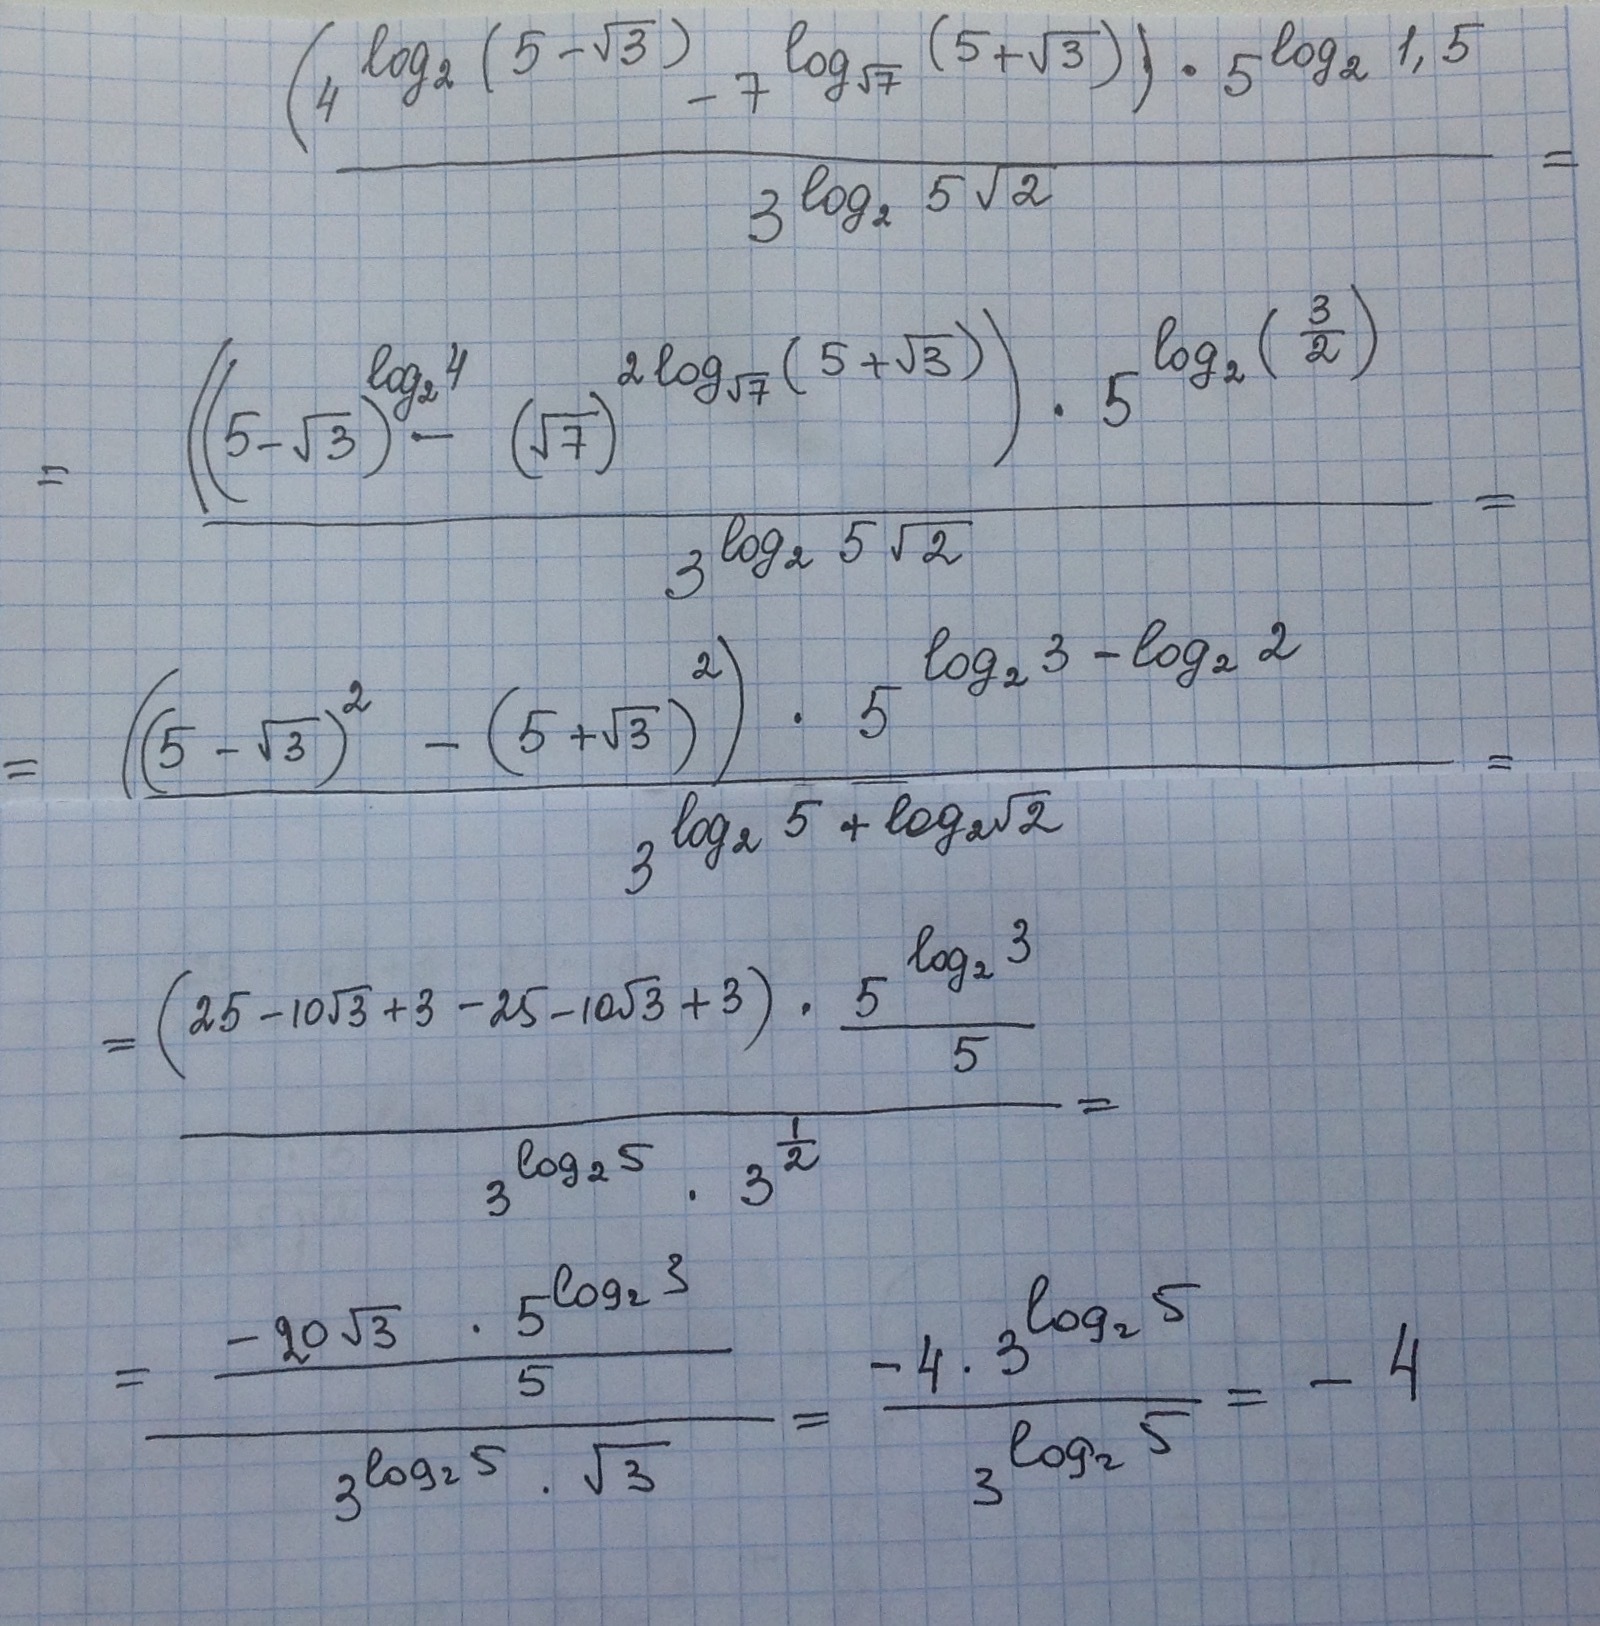 ((4^{log₂(5-√3)} - 7^{log_{√7}(5+√3)}) · 5^{log₂ 1,5}) / (3^{log₂ 5√2}) =
= (((5-√3)^{log₂ 4} - (√7)^{2log_{√7}(5+√3)}) · 5^{log₂(3/2)}) / (3^{log₂ 5√2}) =
= (((5-√3)² - (5+√3)²) · 5^{log₂ 3 - log₂ 2}) / (3^{log₂ 5 + log₂ √2}) =
= ((25-10√3+3-25-10√3+3) · (5^{log₂ 3} / 5)) / (3^{log₂ 5} · 3^{1/2}) =
= ((-20√3 · 5^{log₂ 3}) / 5) / (3^{log₂ 5} · √3) = (-4 · 3^{log₂ 5}) / (3^{log₂ 5}) = -4